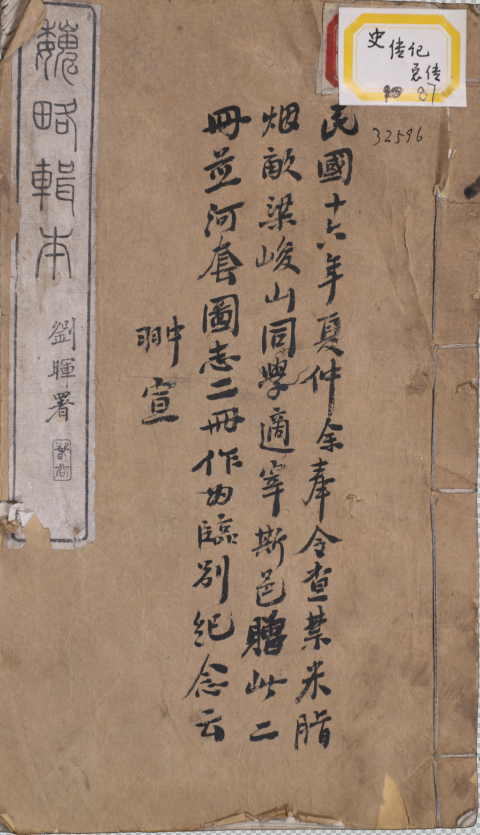 史传记
总传
87
32596
民國十六年夏仲余奉令查禁米脂
烟畝梁峻山同學適宰斯邑贈此二
冊並河套圖志二冊作为臨别紀念云
翀宣
魏略輯本
劉暉署